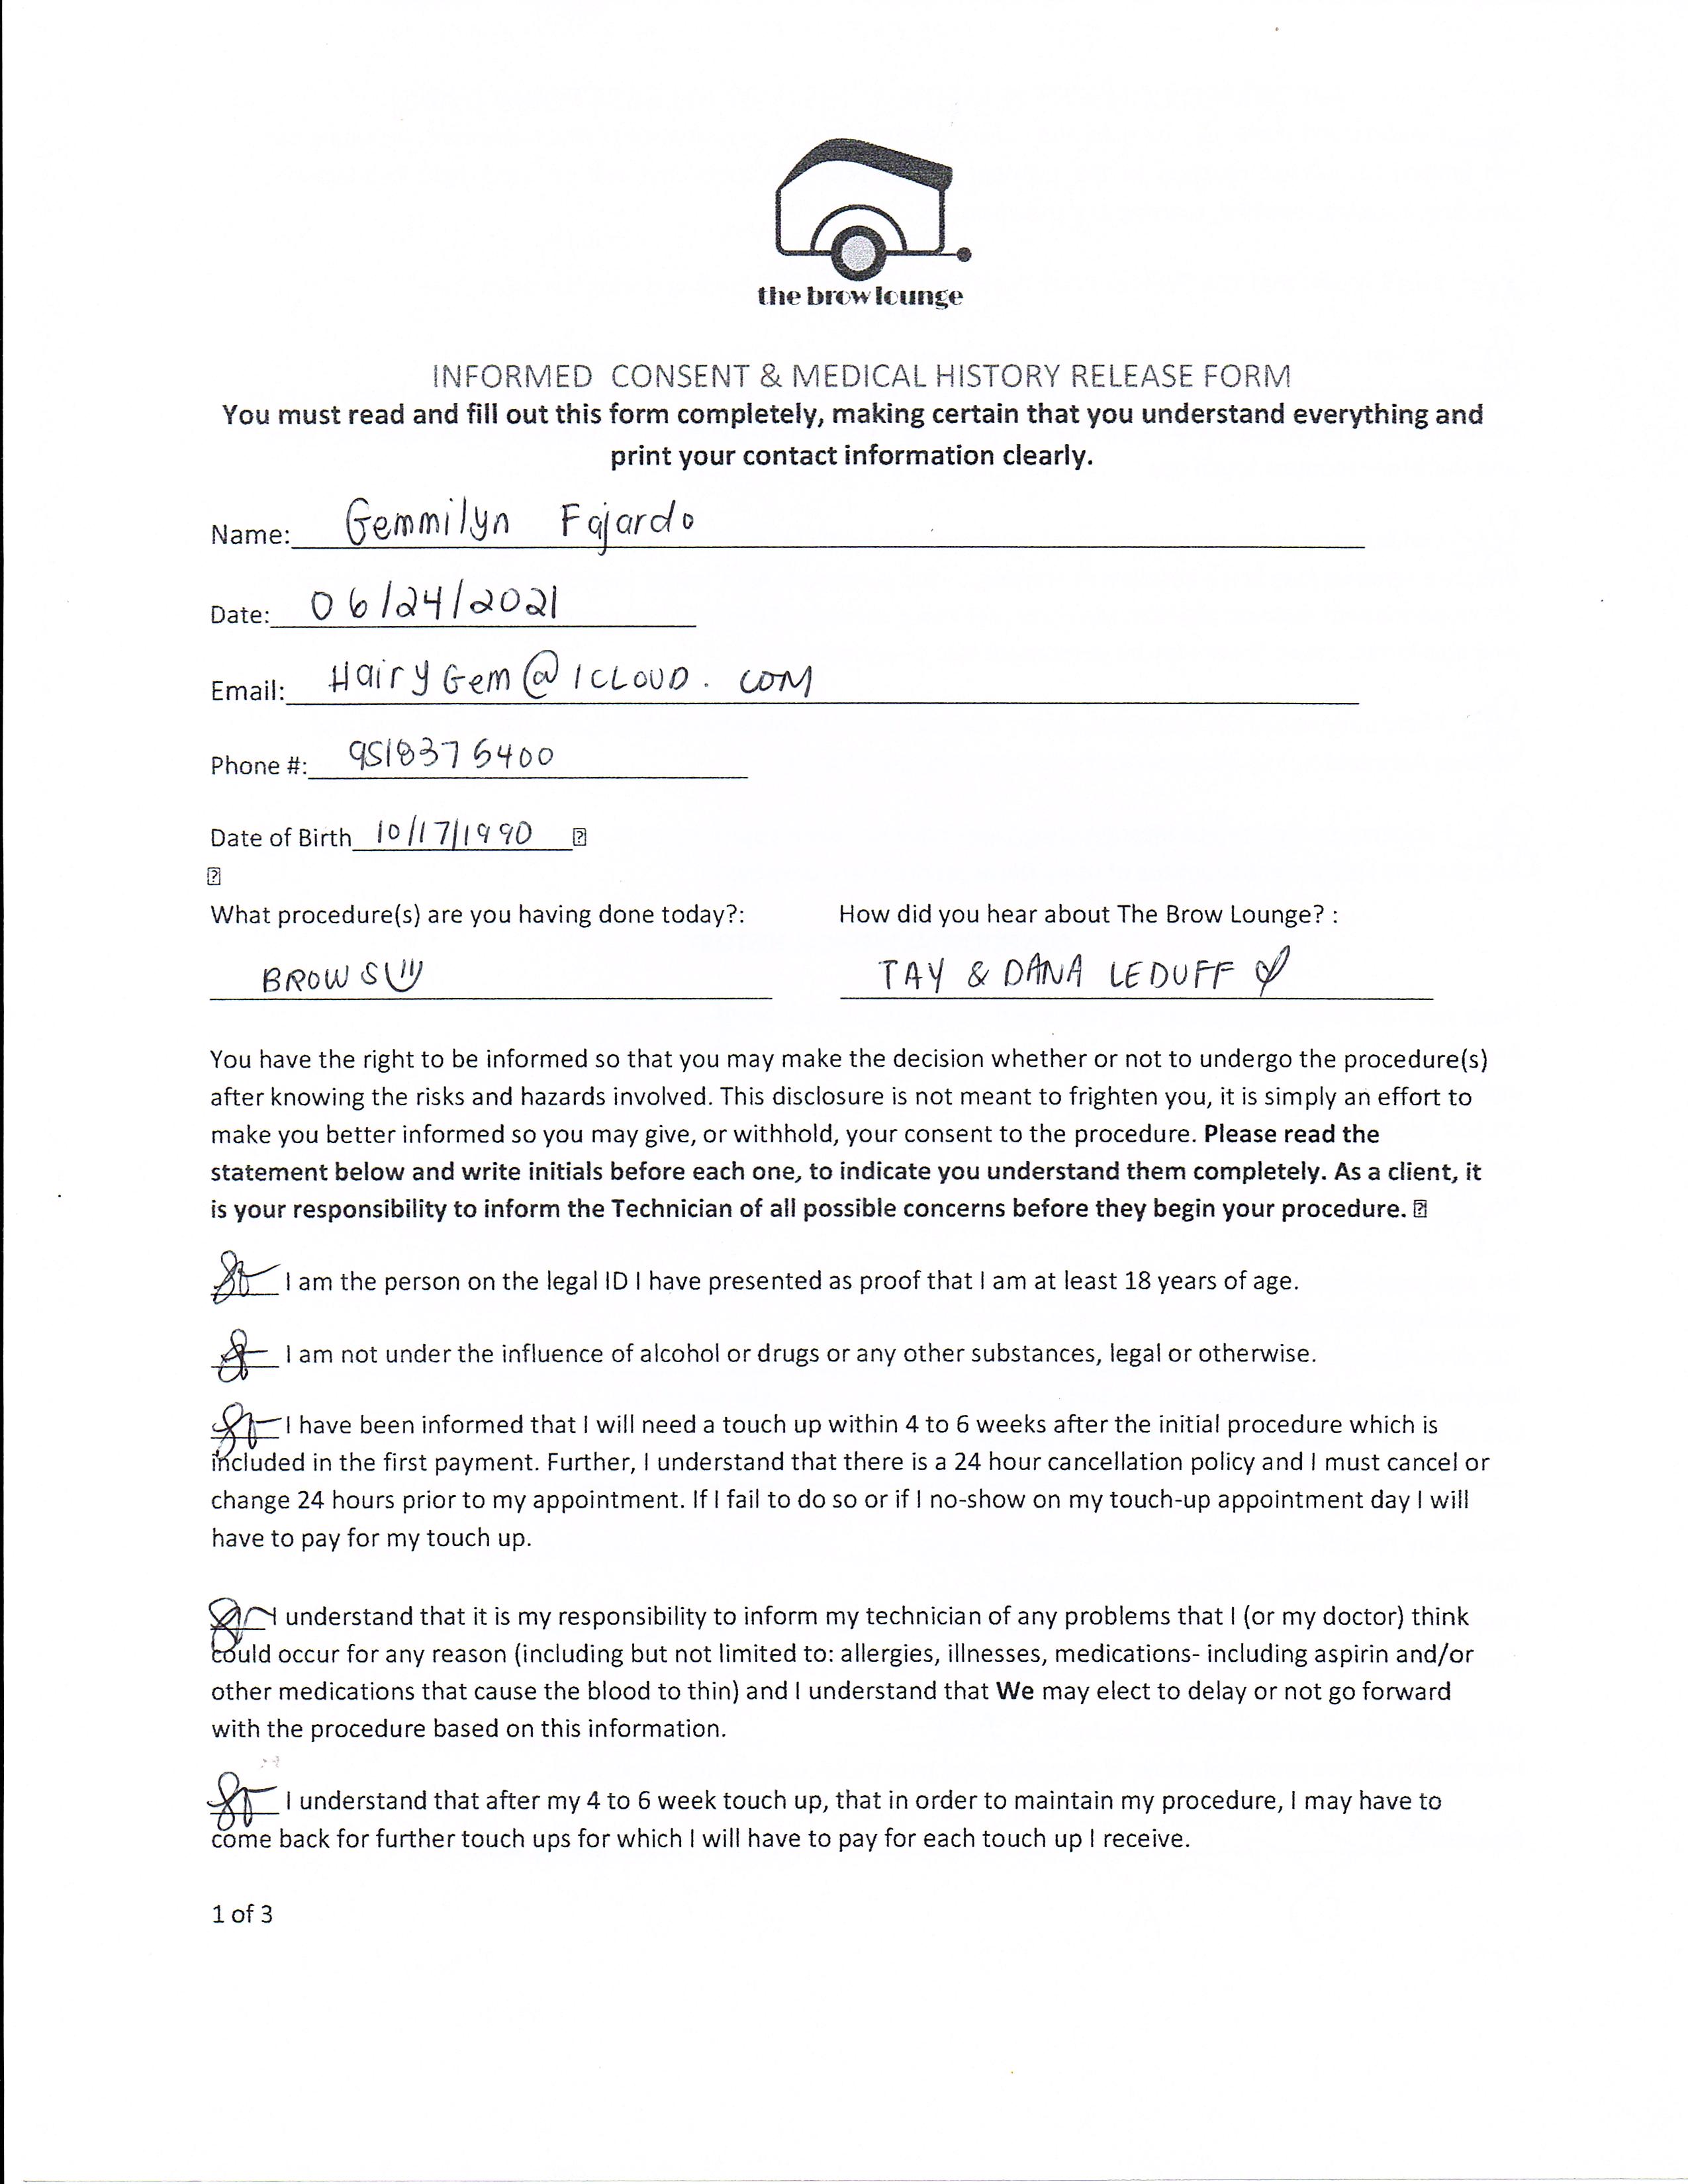 the brow lounge
INFORMED CONSENT & MEDICAL HISTORY RELEASE FORM
You must read and fill out this form completely, making certain that you understand everything and
print your contact information clearly.
Name: Gemmilyn Fajardo
Date: 06/24/2021
Email: HairyGem@ICLOUD.COM
Phone #: 9518376400
Date of Birth 10/17/1990
What procedure(s) are you having done today?: How did you hear about The Brow Lounge? :
BROWS TAY & DANA LEDUFF
You have the right to be informed so that you may make the decision whether or not to undergo the procedure(s)
after knowing the risks and hazards involved. This disclosure is not meant to frighten you, it is simply an effort to
make you better informed so you may give, or withhold, your consent to the procedure. Please read the
statement below and write initials before each one, to indicate you understand them completely. As a client, it
is your responsibility to inform the Technician of all possible concerns before they begin your procedure.
I am the person on the legal ID I have presented as proof that I am at least 18 years of age.
I am not under the influence of alcohol or drugs or any other substances, legal or otherwise.
I have been informed that I will need a touch up within 4 to 6 weeks after the initial procedure which is
included in the first payment. Further, I understand that there is a 24 hour cancellation policy and I must cancel or
change 24 hours prior to my appointment. If I fail to do so or if I no-show on my touch-up appointment day I will
have to pay for my touch up.
I understand that it is my responsibility to inform my technician of any problems that I (or my doctor) think
could occur for any reason (including but not limited to: allergies, illnesses, medications- including aspirin and/or
other medications that cause the blood to thin) and I understand that We may elect to delay or not go forward
with the procedure based on this information.
I understand that after my 4 to 6 week touch up, that in order to maintain my procedure, I may have to
come back for further touch ups for which I will have to pay for each touch up I receive.
1 of 3